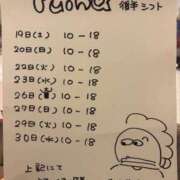 後半シフト
19日(土) 10-18
20日(日) 10-18
22日(火) 10-18
23日(水) 10-18
26日 10-18
27日(日) 10-18
29日(火) 10-18
30日(水) 10-18
上記にて